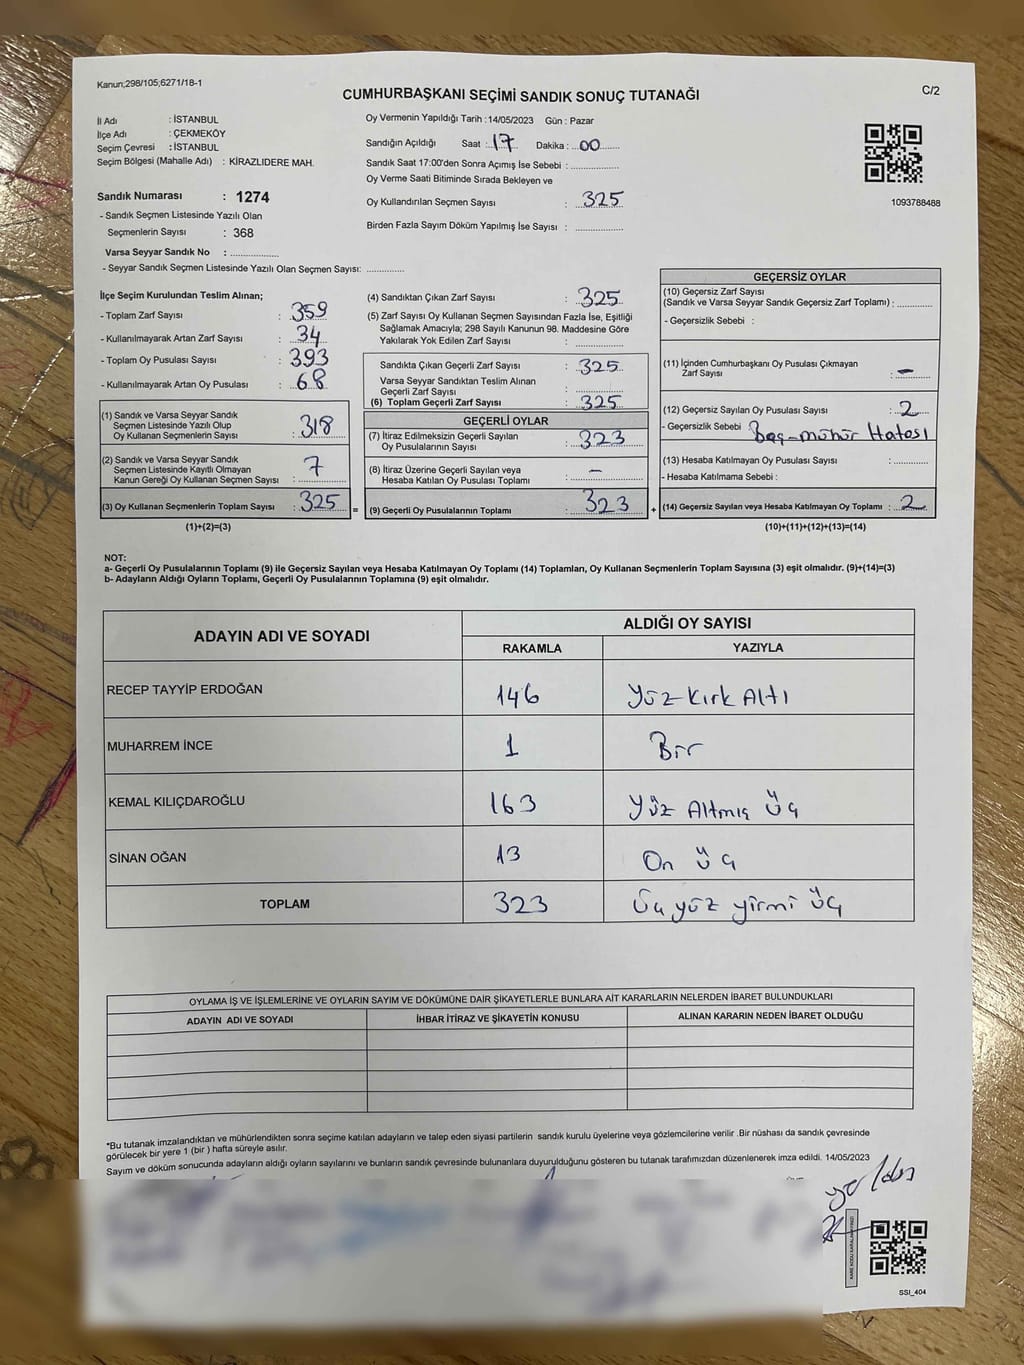 Kanun;298/105;6271/18-1
CUMHURBAŞKANI SEÇİMİ SANDIK SONUÇ TUTANAĞI
C/2
İl Adı : İSTANBUL
İlçe Adı : ÇEKMEKÖY
Seçim Çevresi : İSTANBUL
Seçim Bölgesi (Mahalle Adı) : KİRAZLIDERE MAH.
Oy Vermenin Yapıldığı Tarih : 14/05/2023 Gün : Pazar
Sandığın Açıldığı Saat : 17 Dakika : 00
Sandık Saat 17:00'den Sonra Açımış İse Sebebi :
Oy Verme Saati Bitiminde Sırada Bekleyen ve
Oy Kullandırılan Seçmen Sayısı : 325
Birden Fazla Sayım Döküm Yapılmış İse Sayısı :
1093788488
Sandık Numarası : 1274
- Sandık Seçmen Listesinde Yazılı Olan
Seçmenlerin Sayısı : 368
Varsa Seyyar Sandık No :
- Seyyar Sandık Seçmen Listesinde Yazılı Olan Seçmen Sayısı:
İlçe Seçim Kurulundan Teslim Alınan;
- Toplam Zarf Sayısı : 359
- Kullanılmayarak Artan Zarf Sayısı : 34
- Toplam Oy Pusulası Sayısı : 393
- Kullanılmayarak Artan Oy Pusulası : 68
(1) Sandık ve Varsa Seyyar Sandık
Seçmen Listesinde Yazılı Olup
Oy Kullanan Seçmenlerin Sayısı : 318
(2) Sandık ve Varsa Seyyar Sandık
Seçmen Listesinde Kayıtlı Olmayan
Kanun Gereği Oy Kullanan Seçmen Sayısı : 7
(3) Oy Kullanan Seçmenlerin Toplam Sayısı : 325
(1)+(2)=(3)
(4) Sandıktan Çıkan Zarf Sayısı : 325
(5) Zarf Sayısı Oy Kullanan Seçmen Sayısından Fazla İse, Eşitliği
Sağlamak Amacıyla; 298 Sayılı Kanunun 98. Maddesine Göre
Yakılarak Yok Edilen Zarf Sayısı :
Sandıkta Çıkan Geçerli Zarf Sayısı : 325
Varsa Seyyar Sandıktan Teslim Alınan
Geçerli Zarf Sayısı :
(6) Toplam Geçerli Zarf Sayısı : 325
GEÇERLİ OYLAR
(7) İtiraz Edilmeksizin Geçerli Sayılan
Oy Pusulalarının Sayısı : 323
(8) İtiraz Üzerine Geçerli Sayılan veya
Hesaba Katılan Oy Pusulası Toplamı : -
= (9) Geçerli Oy Pusulalarının Toplamı : 323 +
GEÇERSİZ OYLAR
(10) Geçersiz Zarf Sayısı
(Sandık ve Varsa Seyyar Sandık Geçersiz Zarf Toplamı) :
- Geçersizlik Sebebi :
(11) İçinden Cumhurbaşkanı Oy Pusulası Çıkmayan
Zarf Sayısı : -
(12) Geçersiz Sayılan Oy Pusulası Sayısı : 2
- Geçersizlik Sebebi Baş-mühür Hatası
(13) Hesaba Katılmayan Oy Pusulası Sayısı :
- Hesaba Katılmama Sebebi :
(14) Geçersiz Sayılan veya Hesaba Katılmayan Oy Toplamı : 2
(10)+(11)+(12)+(13)=(14)
NOT:
a- Geçerli Oy Pusulalarının Toplamı (9) ile Geçersiz Sayılan veya Hesaba Katılmayan Oy Toplamı (14) Toplamları, Oy Kullanan Seçmenlerin Toplam Sayısına (3) eşit olmalıdır. (9)+(14)=(3)
b- Adayların Aldığı Oyların Toplamı, Geçerli Oy Pusulalarının Toplamına (9) eşit olmalıdır.
ADAYIN ADI VE SOYADI
ALDIĞI OY SAYISI
RAKAMLA YAZIYLA
RECEP TAYYİP ERDOĞAN 146 Yüz Kırk Altı
MUHARREM İNCE 1 Bir
KEMAL KILIÇDAROĞLU 163 Yüz Altmış Üç
SİNAN OĞAN 13 On Üç
TOPLAM 323 Üçyüz yirmi üç
OYLAMA İŞ VE İŞLEMLERİNE VE OYLARIN SAYIM VE DÖKÜMÜNE DAİR ŞİKAYETLERLE BUNLARA AİT KARARLARIN NELERDEN İBARET BULUNDUKLARI
ADAYIN ADI VE SOYADI İHBAR İTİRAZ VE ŞİKAYETİN KONUSU ALINAN KARARIN NEDEN İBARET OLDUĞU
*Bu tutanak imzalandıktan ve mühürlendikten sonra seçime katılan adayların ve talep eden siyasi partilerin sandık kurulu üyelerine veya gözlemcilerine verilir .Bir nüshası da sandık çevresinde
görülecek bir yere 1 (bir ) hafta süreyle asılır.
Sayım ve döküm sonucunda adayların aldığı oyların sayılarını ve bunların sandık çevresinde bulunanlara duyurulduğunu gösteren bu tutanak tarafımızdan düzenlenerek imza edildi. 14/05/2023
SSI_404